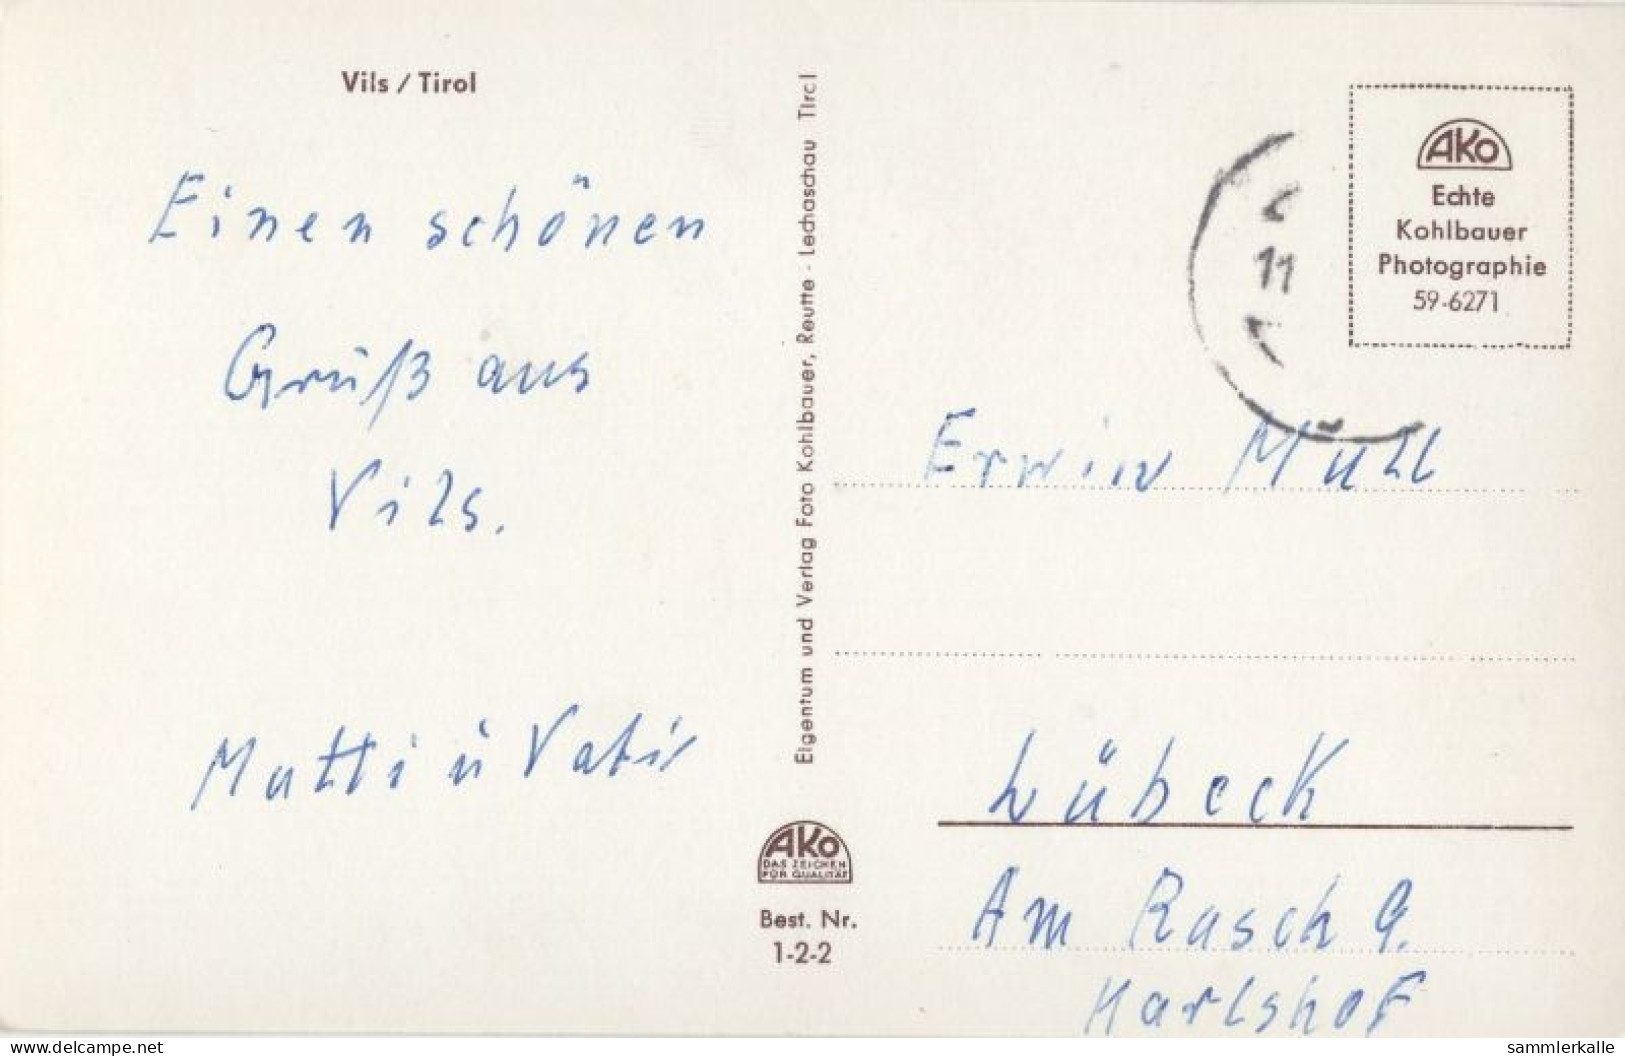 Vils / Tirol
Einen schönen
Gruß aus
Vils.
Mutti ü Vati
Eigentum und Verlag Foto Kohlbauer, Reutte - Lechaschau Tirol
AKO
DAS ZEICHEN
FÜR QUALITÄT
Best. Nr.
1-2-2
AKO
Echte
Kohlbauer
Photographie
59-6271
11
Erwin Mühl
Lübeck
Am Rasch 9.
Karlshof
delcampe.net
sammlerkalle